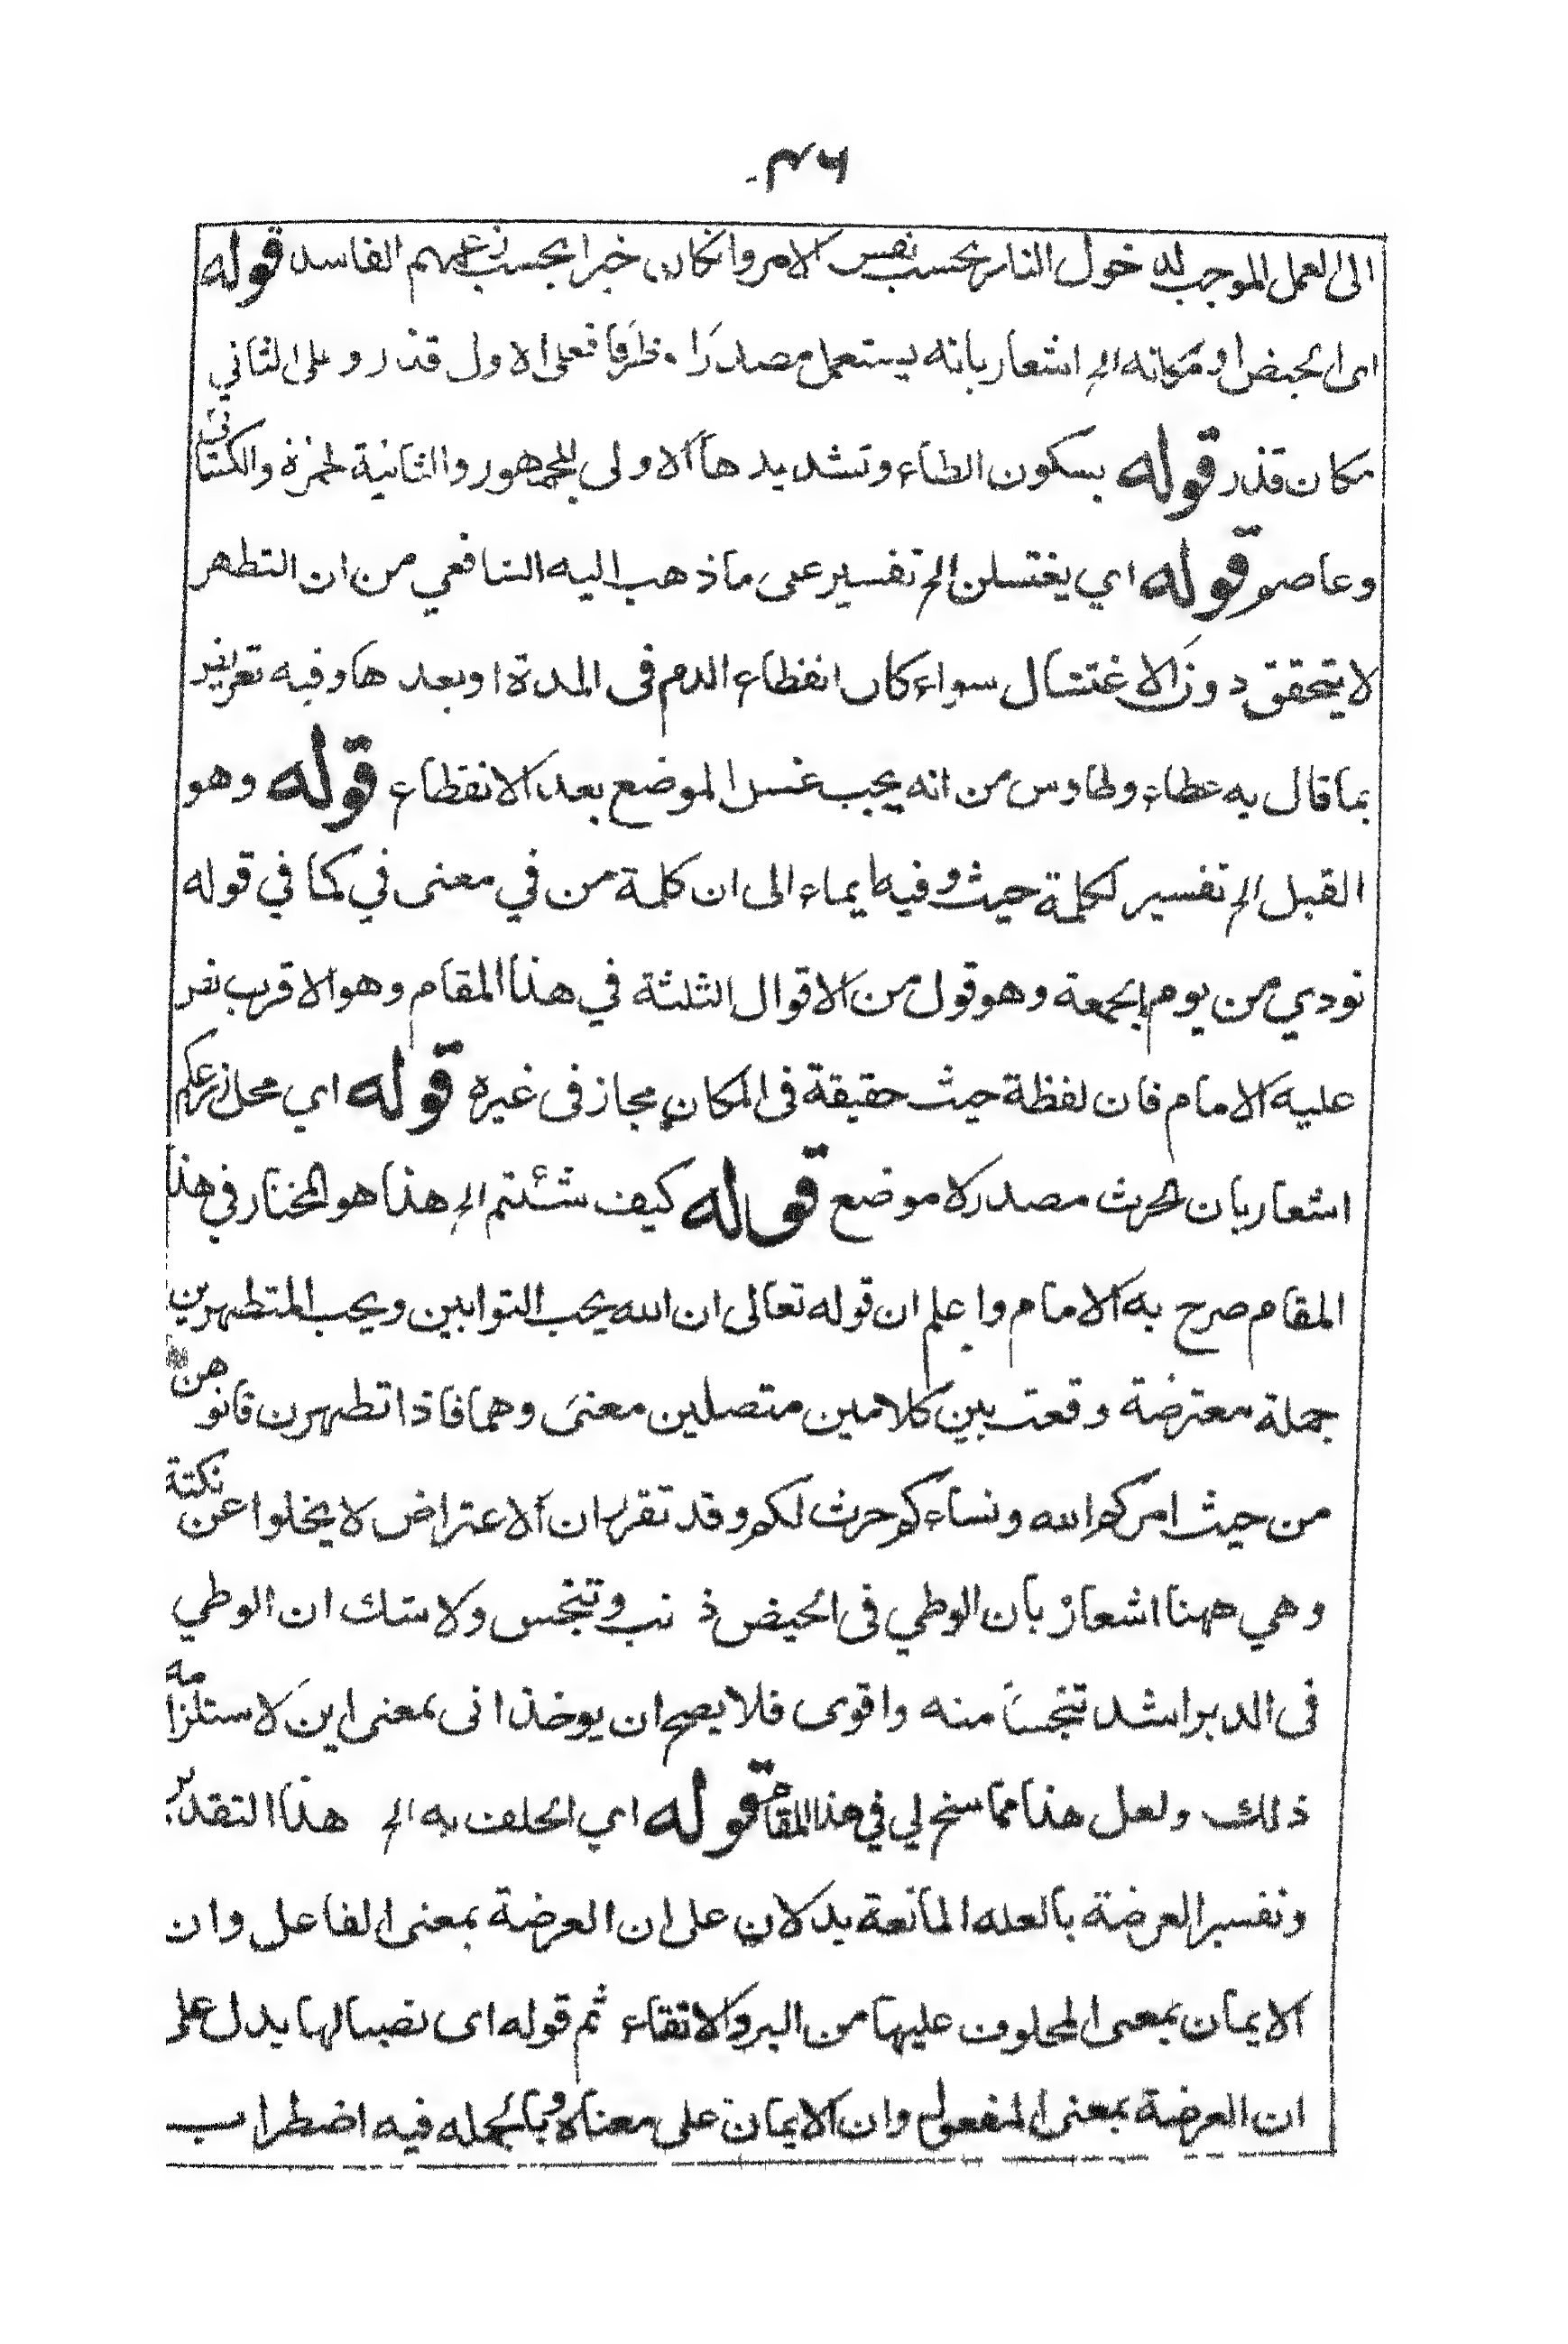 الى العمل الموجب لدخول النار بحسب نفس الامر وانكان خيرا بحسب زعمهم الفاسد قوله
اى الحيض او مكانه الخ اشعار بانه يستعمل مصدرا وظرفا فعلى الاول قذر وعلى الثاني
مكان قذر قوله بسكون الطاء وتشديدها الاولى للجمهور والثانية لحمزة والكسائي
وعاصم قوله اي يغتسلن الخ تفسير على ما ذهب اليه الشافعي من ان التطهر
لا يتحقق دون الاغتسال سواء كان انقطاع الدم فى المدة او بعدها وفيه تعريض
بما قال به عطاء وطاوس من انه يجب غسل الموضع بعد الانقطاع قوله وهو
القبل الخ تفسير لكلمة حيث وفيه ايماء الى ان كلمة من في معنى في كما في قوله
نودي من يوم الجمعة وهو قول من الاقوال الثلثة في هذا المقام وهو الاقرب نص
عليه الامام فان لفظة حيث حقيقة فى المكان مجاز فى غيره قوله اي محل زرعكم
اشعار بان الحرث مصدر لا موضع قوله كيف شئتم الخ هذا هو المختار في هذا
المقام صرح به الامام واعلم ان قوله تعالى ان الله يحب التوابين ويحب المتطهرين
جملة معترضة وقعت بين كلامين متصلين معنى وهما فاذا تطهرن فاتوهن
من حيث امركم الله ونساءكم حرث لكم وقد تقرر ان الاعتراض لا يخلوا عن نكتة
وهي ههنا اشعار بان الوطي فى الحيض ذنب وتنجس ولا شك ان الوطي
فى الدبر اشد تنجسا منه واقوى فلا يصح ان يوخذ انى بمعنى اين لاستلزامه
ذلك ولعل هذا مما سنح لي في هذا المقام قوله اي الحلف به الخ هذا التقدير
وتفسير العرضة بالعله المانعة يدلان على ان العرضة بمعنى الفاعل وان
الايمان بمعنى المحلوف عليها من البر والاتقاء ثم قوله اى نصبا لها يدل على
ان العرضة بمعنى المفعول وان الايمان على معناه وبالجمله فيه اضطراب